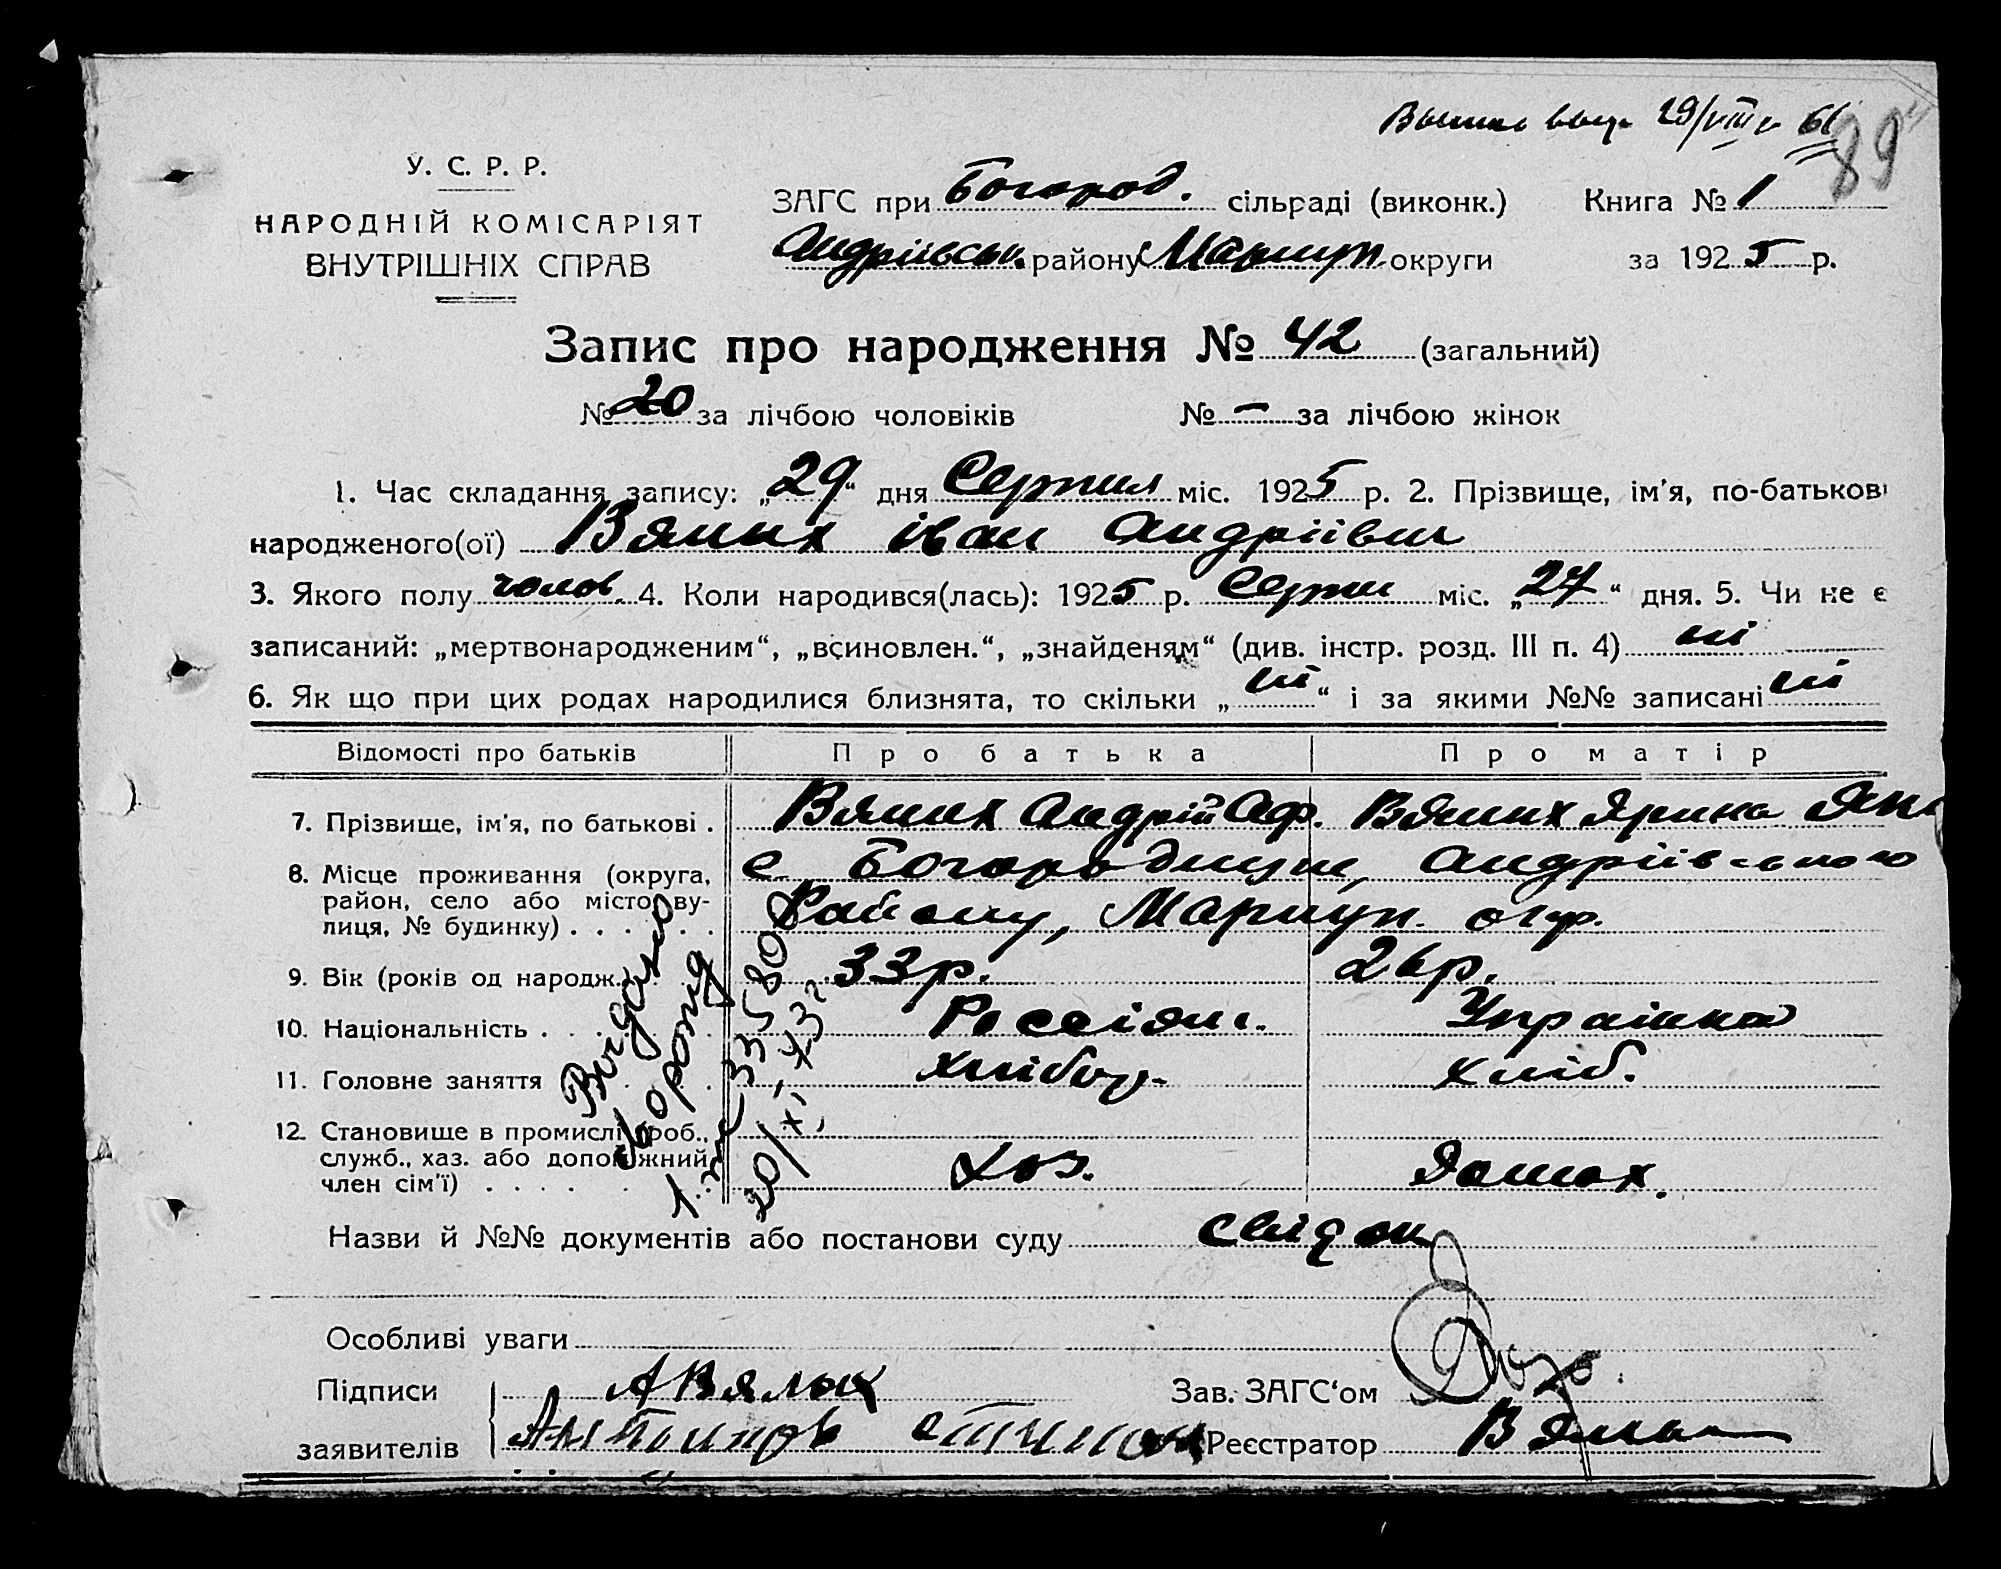 29/VIII 61
89
У. С. Р. Р.
НАРОДНІЙ КОМІСАРІЯТ
ВНУТРІШНІХ СПРАВ
ЗАГС при Богород. сільраді (виконк.) Книга № 1
Андріївськ. району Маріуп. округи за 1925 р.
Запис про народження № 42 (загальний)
№ 20 за лічбою чоловіків № — за лічбою жінок
1. Час складання запису: „29“ дня Серпня міс. 1925 р. 2. Прізвище, ім'я, по-батькові
народженого(ої) Вялих Іван Андріївич
3. Якого полу чолов. 4. Коли народився(лась): 1925 р. Серпн міс. „27“ дня. 5. Чи не є
записаний: „мертвонародженим“, „всиновлен.“, „знайденям“ (див. інстр. розд. III п. 4) ні
6. Як що при цих родах народилися близнята, то скільки „ні“ і за якими №№ записані ні
Відомості про батьків Про батька Про матір
7. Прізвище, ім'я, по батькові . Вялих Андрій Аф. Вялих Ярина
8. Місце проживання (округа, с Богородицьк, Андріївського
район, село або місто, ву-
лиця, № будинку) . . . . . . Району, Маріуп. окр.
9. Вік (років од народж. 33р. 26р.
10. Національність . . . . . Россіян. Українка
11. Головне заняття хлібор. хліб.
12. Становище в промислі (роб.,
служб., хаз. або допоміжний
член сім'ї) . . . . . Хоз. Домох.
20/XI, 43г
Назви й №№ документів або постанови суду свідок
Особливі уваги
Підписи А Вялых Зав. ЗАГС'ом
заявителів Реєстратор Вялых